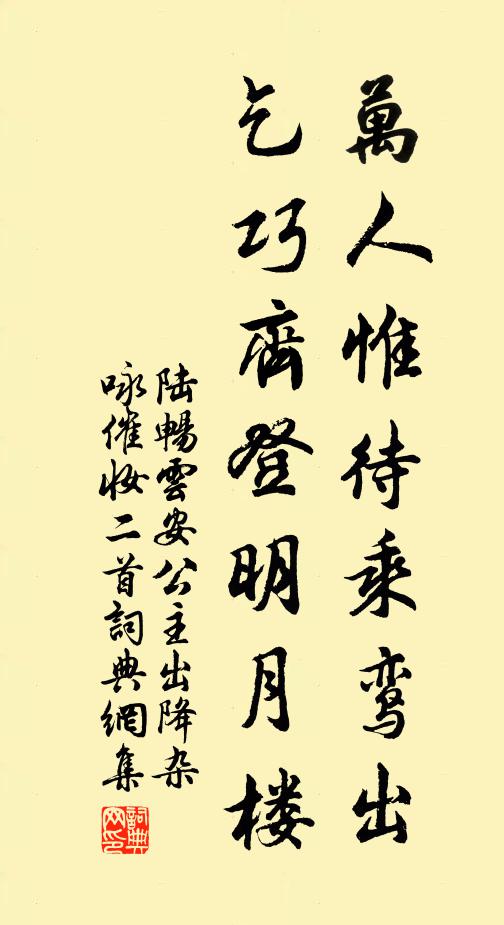 萬人惟待乘鸾出
乞巧齊登明月楼
陆暢雲安公主出降杂
咏催妆二首詞典網集
詞典网印